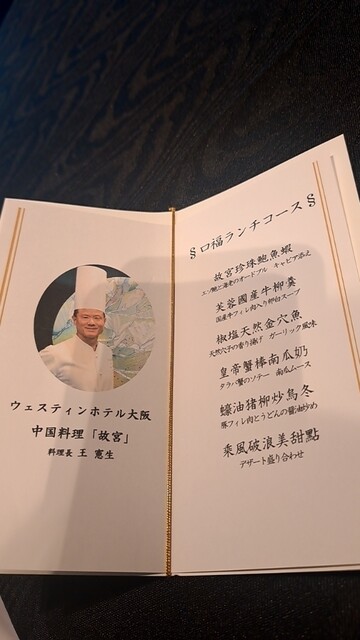 ウェスティンホテル大阪
中国料理「故宮」
料理長 王 憲生
§ 口福ランチコース §
故宮珍珠鮑魚蝦
エゾ鮑と海老のオードブル キャビア添え
芙蓉國産牛柳羹
国産牛フィレ肉入り卵白スープ
椒塩天然金穴魚
天然穴子の香り揚げ ガーリック風味
皇帝蟹棒南瓜奶
タラバ蟹のソテー 南瓜ムース
蠔油猪柳炒烏冬
豚フィレ肉とうどんの醤油炒め
乘風破浪美甜點
デザート盛り合わせ